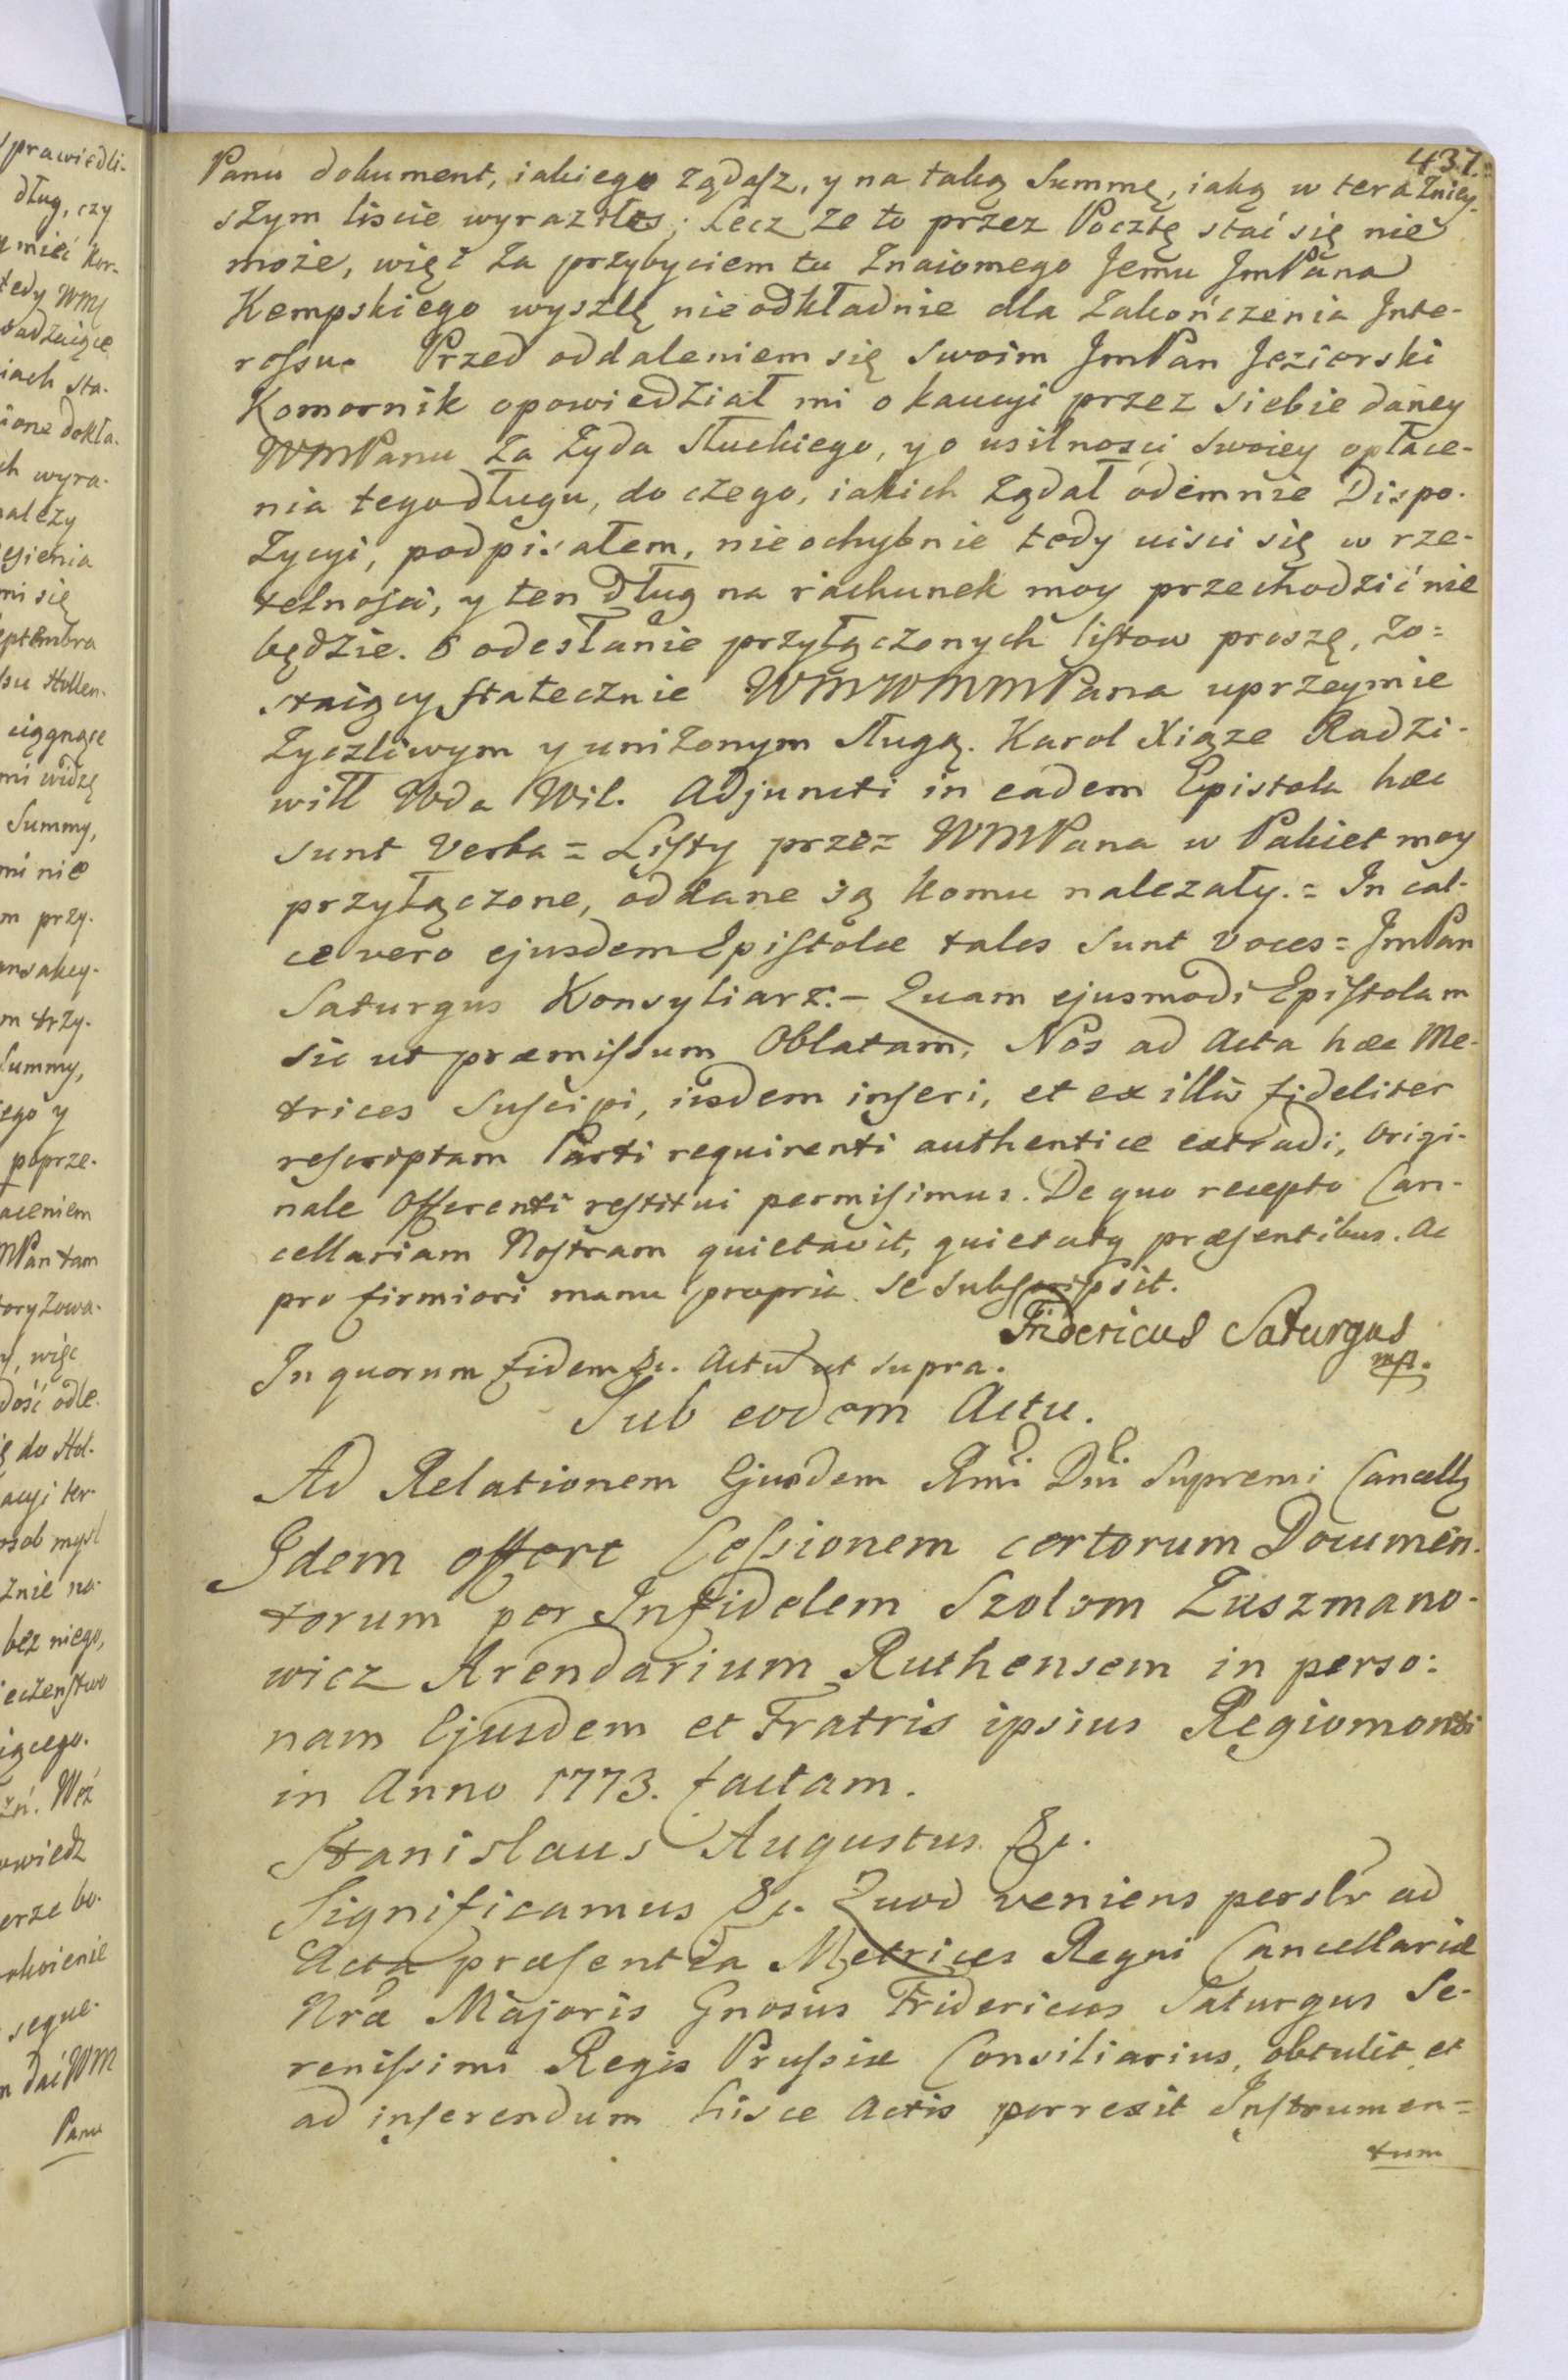 437.
Panu dokument, iakiego żądasz, y na taką Summę, iaką w teraźniey-
szym liscie wyraziłes; Lecz że to przez Pocztę stać się nie
może, więc za przybyciem tu znaiomego Jemu JmPana
Kempskiego wyszlę nieodkładnie dla zakończenia Inte-
ressu. Przed oddaleniem się swoim JmPan Jezierski
Komornik opowiedział mi o kaucyi przez siebie daney
WMPanu za Żyda Słuckiego, y o usilności swoiey opłace-
nia tego długu, do czego, iakich żądał odemnie Dispo-
zycyi, podpisałem, nieochybnie tedy uisci się w rze-
telności, y ten Dług na rachunek moy przechodzić nie
będzie. O odesłanie przyłączonych listow proszę, zo=
staiący statecznie WMWMMPana uprzeymie
życzliwym y uniżonym sługą. Karol Xiąże Radzi-
wiłł Wda Wil. Adjuncti in eadem Epistola hæc
sunt Verba = Listy przez WMPana w Pakiet moy
przyłączone, oddane są komu należały. = In cal-
ce vero ejusdem Epistolæ tales sunt voces = JmPan
Saturgus Konsyliarz. – Quam ejusmodi Epistolam
sic ut præmissum Oblatam, Nos ad Acta hæc Me-
trices suscipi, iisdem inseri, et ex illis fideliter
rescriptam Parti requirenti authentice extradi, Origi-
nale Offerenti restitui permisimus. De quo recepto Can-
cellariam Nostram quietavit, quietatq præsentibus. Ac
pro firmiori manu propria se subscripsit.
Fridericus Saturgus
mp.
In quorum fidem &c. Actu ut supra.
Sub eodem Actu.
Ad Relationem Ejusdem Rmi Dni Supremi Cancelly
Idem offert Cessionem certorum Documen-
torum per Infidelem Szolom Zuszmano-
wicz Arendarium Ruthensem in perso:
nam Ejusdem et Fratris ipsius Regiomonti
in Anno 1773. factam.
Stanislaus Augustus &c.
Significamus &c. Quod veniens perslr ad
Acta præsentia Metrices Regni Cancellariæ
Nræ Majoris Gnosus Fridericus Saturgus Se-
renissimi Regis Prussiæ Consiliarius, obtulit et
ad inserendum hisce Actis porrexit Instrumen=
tum